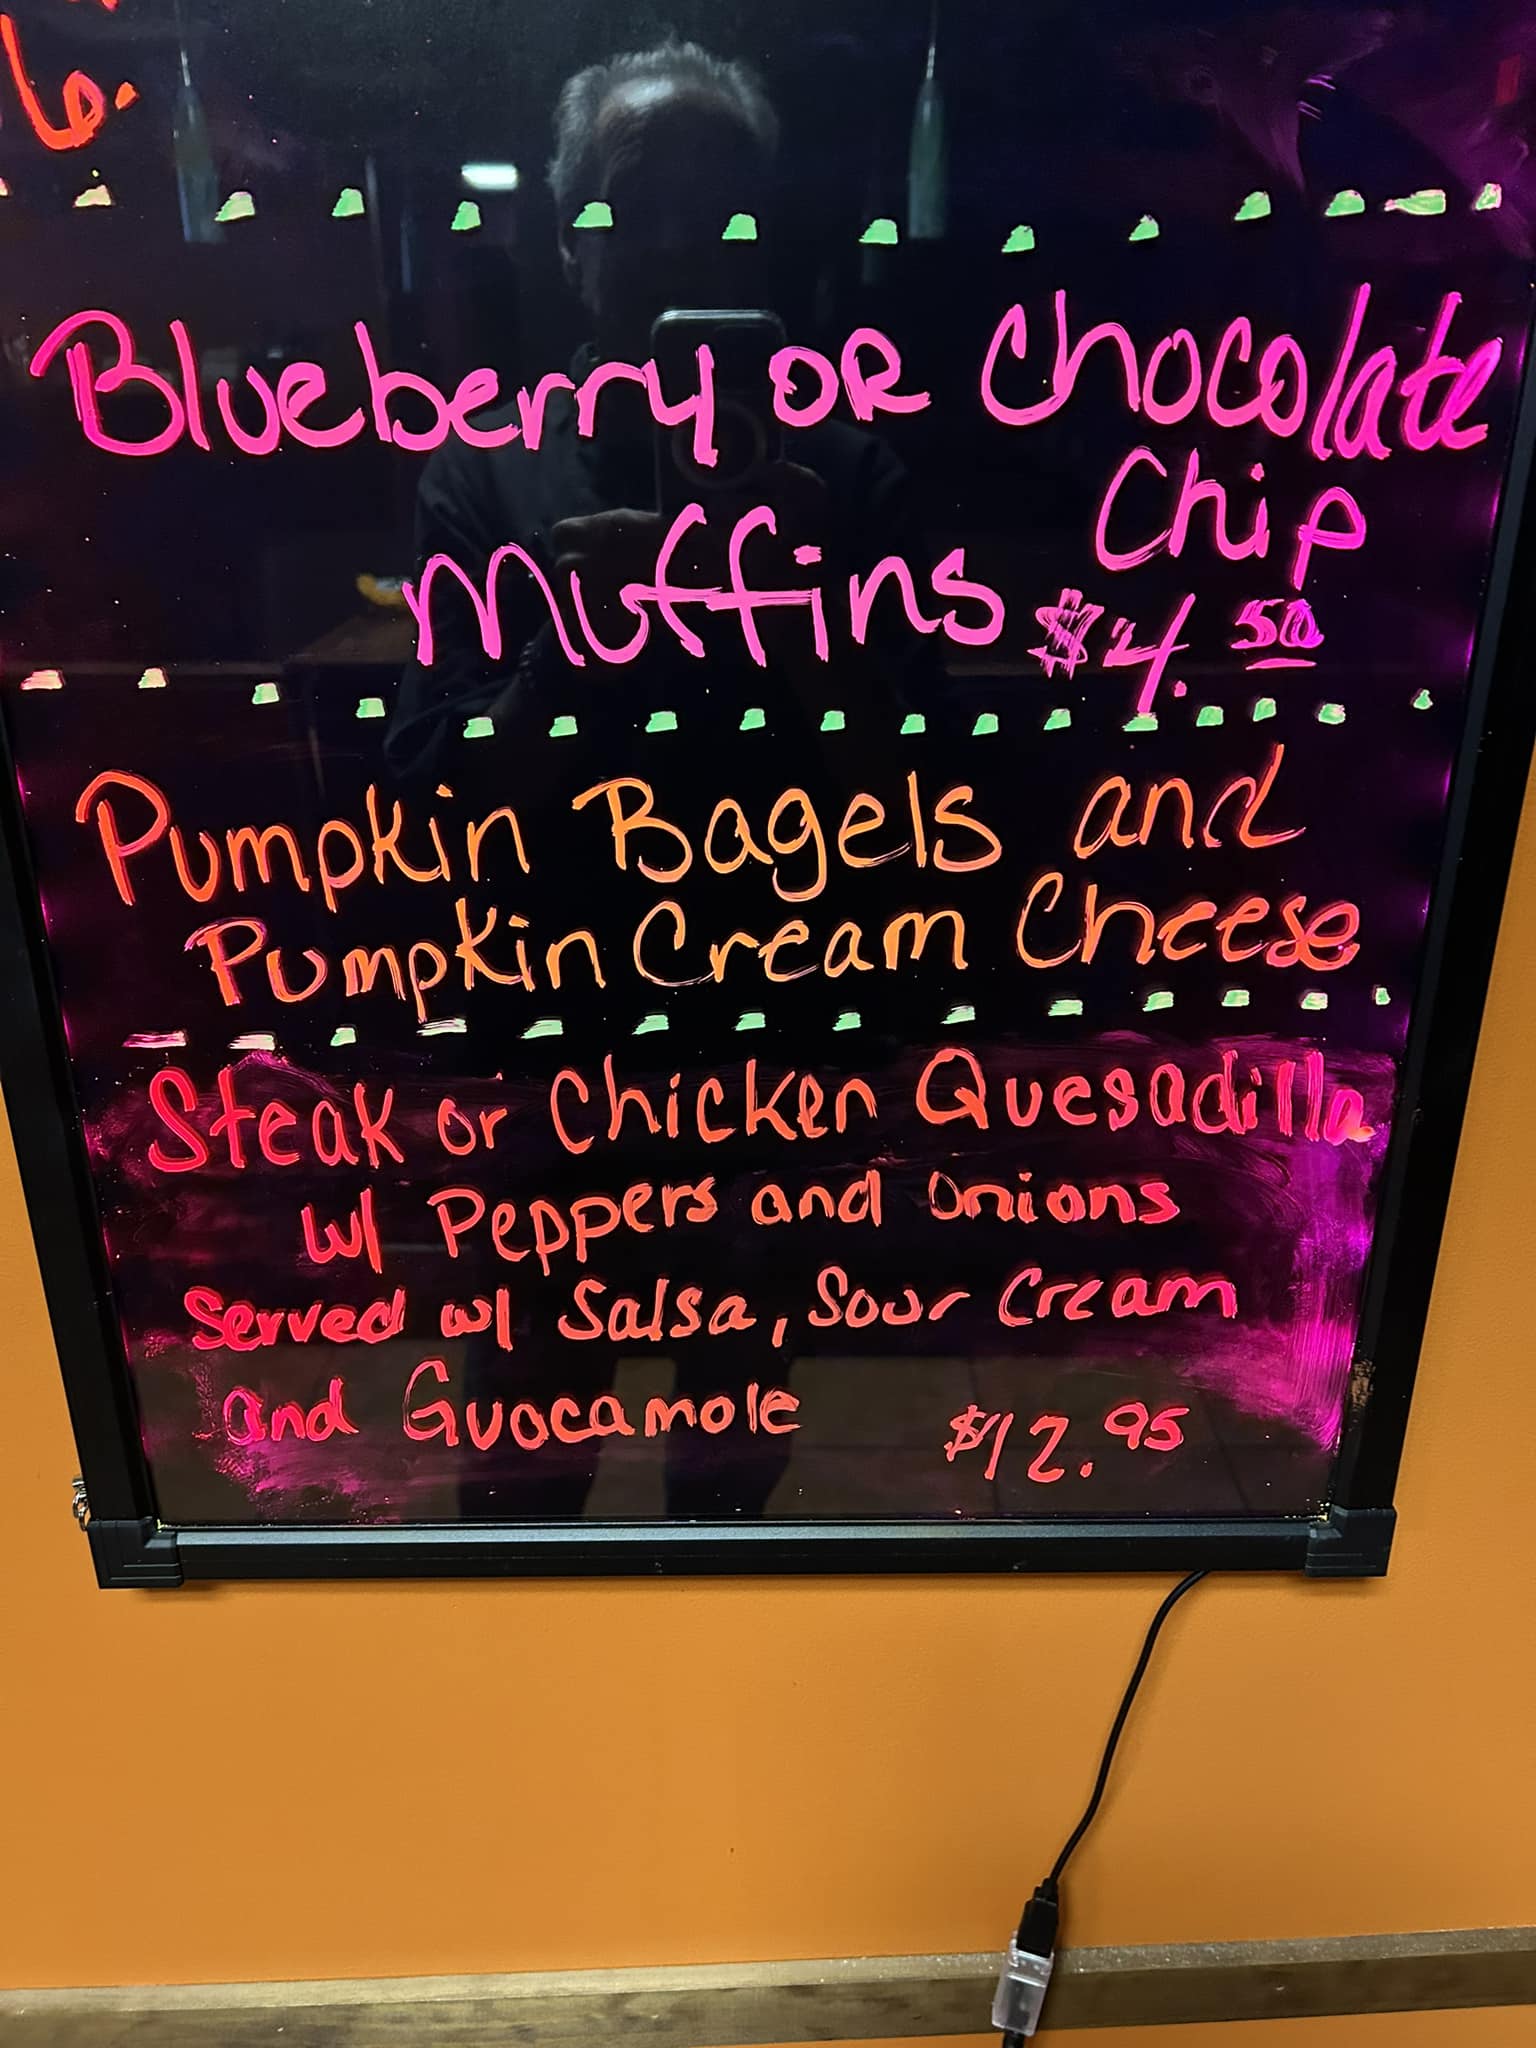 6.
Blueberry OR Chocolate
Chip
Muffins $4.50
Pumpkin Bagels and
Pumpkin Cream Cheese
Steak or Chicken Quesadilla
w/ Peppers and Onions
Served w/ Salsa, Sour Cream
and Guacamole $12.95